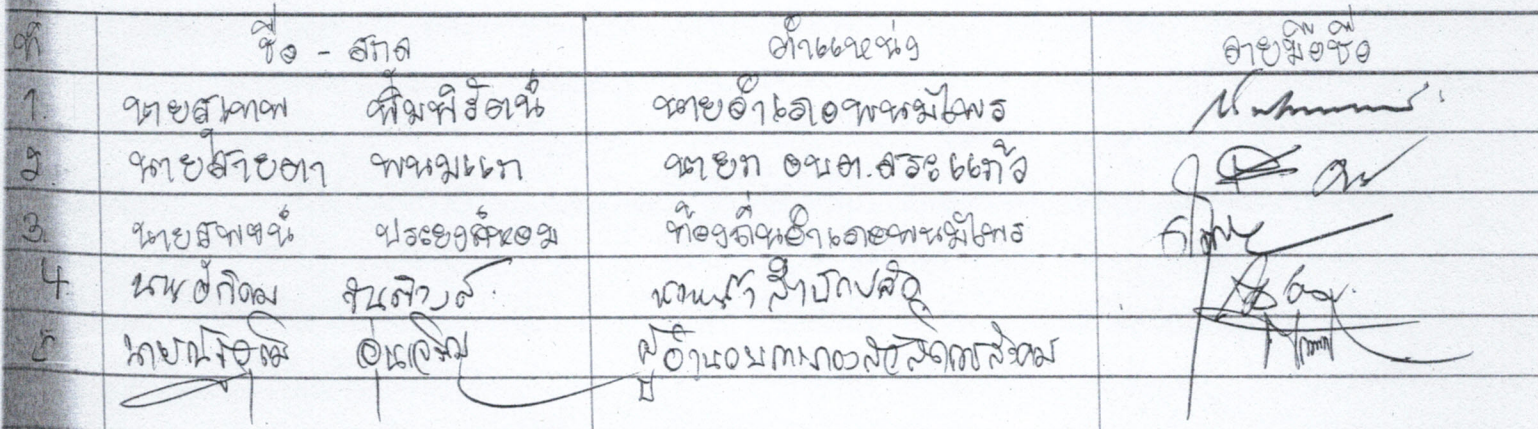 ที่ ชื่อ - สกุล ตำแหน่ง ลายมือชื่อ
1. นายสุเทพ พิมพิรัตน์ นายอำเภอพนมไพร
2. นายสายตา พนมแก นายก อบต.สระแก้ว
3. นายสุพจน์ ประยงค์หอม ท้องถิ่นอำเภอพนมไพร
4 หัวหน้าสำนักปลัด
5 ผู้อำนวยการกองสวัสดิการสังคม